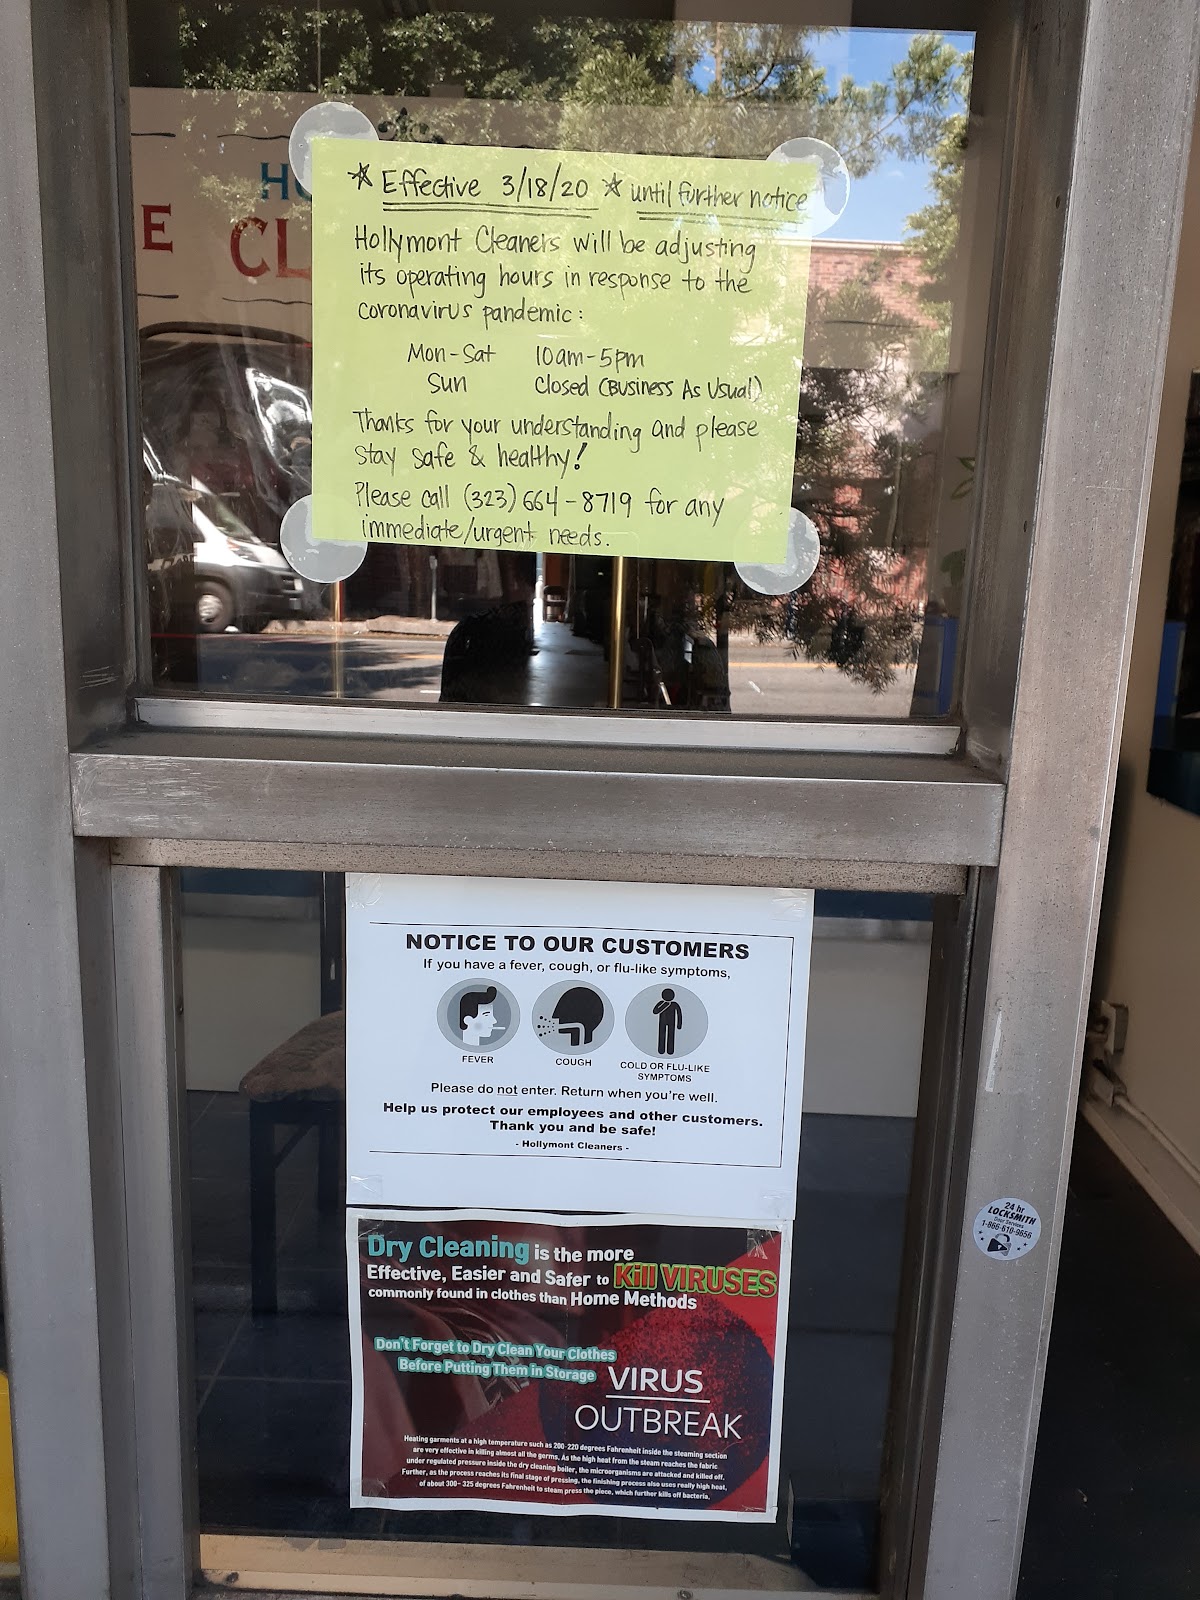 HO
E CL
☆ Effective 3/18/20 ☆ until further notice
Hollymont Cleaners will be adjusting
its operating hours in response to the
coronavirus pandemic:
Mon-Sat 10am-5pm
Sun Closed (Business As Usual)
Thanks for your understanding and please
Stay Safe & healthy!
Please call (323) 664-8719 for any
immediate/urgent needs.
NOTICE TO OUR CUSTOMERS
If you have a fever, cough, or flu-like symptoms,
FEVER COUGH COLD OR FLU-LIKE
SYMPTOMS
Please do not enter. Return when you're well.
Help us protect our employees and other customers.
Thank you and be safe!
- Hollymont Cleaners -
Dry Cleaning is the more
Effective, Easier and Safer to Kill VIRUSES
commonly found in clothes than Home Methods
Don't Forget to Dry Clean Your Clothes
Before Putting Them in Storage
VIRUS
OUTBREAK
Heating garments at a high temperature such as 200-220 degrees Fahrenheit inside the steaming section
are very effective in killing almost all the germs. As the high heat from the steam reaches the fabric
under regulated pressure inside the dry cleaning boiler, the microorganisms are attacked and killed off.
Further, as the process reaches its final stage of pressing, the finishing process also uses really high heat,
of about 300-325 degrees Fahrenheit to steam press the piece, which further kills off bacteria.
24 hr
LOCKSMITH
Door Services
1-866-610-9656